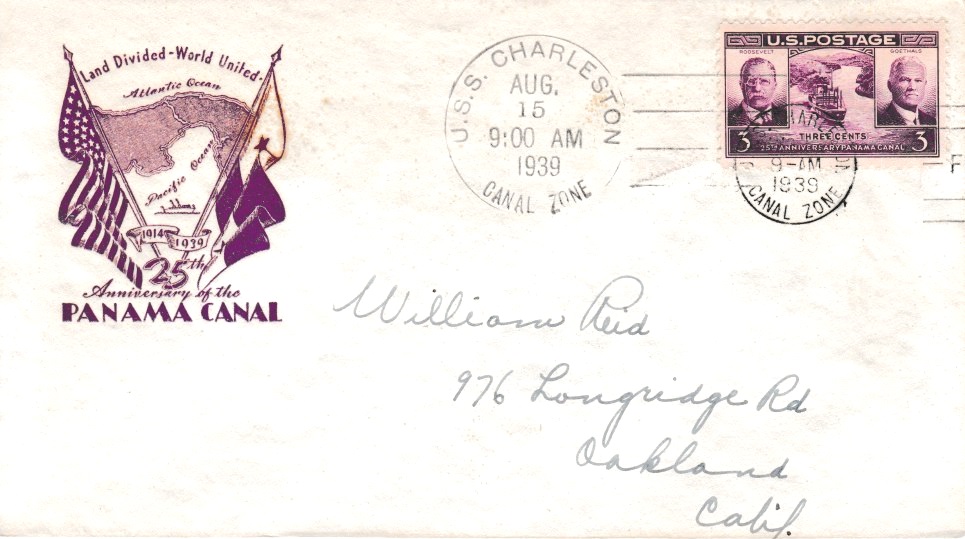 Land Divided-World United-
Atlantic Ocean
Pacific Ocean
1914 1939
25th
Anniversary of the
PANAMA CANAL
U.S.S. CHARLESTON
AUG.
15
9:00 AM
1939
CANAL ZONE
U.S. POSTAGE
ROOSEVELT GOETHALS
THREE CENTS
3 3
25TH ANNIVERSARY PANAMA CANAL
9-AM
1939
CANAL ZONE
F
William Reid
976 Longridge Rd
Oakland
Calif.